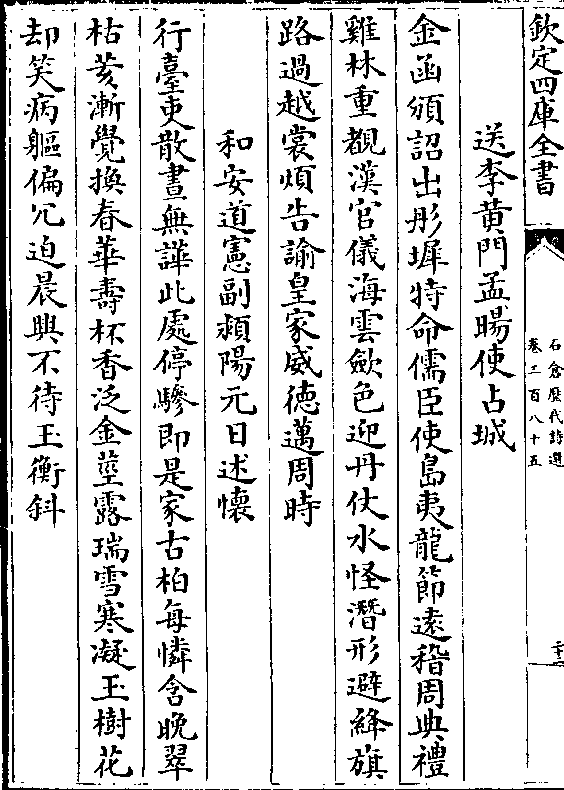 欽定四庫全書
石倉歷代詩選
卷三百八十五
送李黄門孟暘使占城
金函頒詔出彤墀特命儒臣使島夷龍節遠稽周典禮
雞林重覩漢官儀海雲歛色迎丹仗水怪潛形避絳旗
路過越裳煩告諭皇家威德邁周時
和安道憲副潁陽元日述懷
行臺吏散晝無譁此處停驂即是家古柏每憐含晚翠
枯荄漸覺換春華壽杯香泛金莖露瑞雪寒凝玉樹花
却笑病軀偏冗迫晨興不待玉衡斜